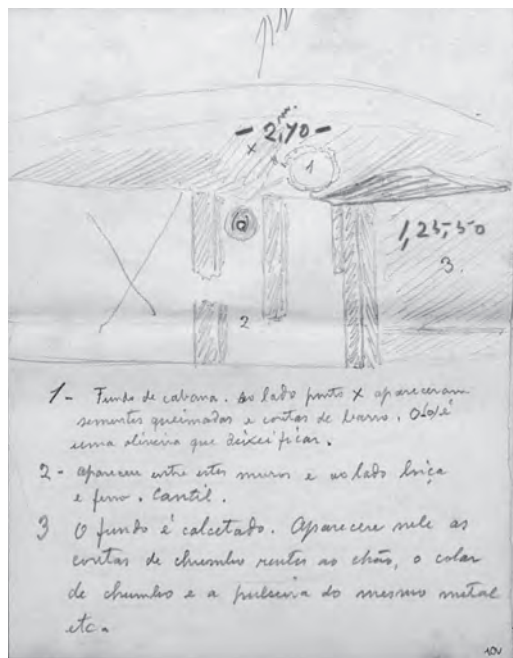 - 2,70 -
x
1
a
1,25,50
3.
2
1 - Fundo de cabana. Ao lado ponto X apareceram
sementes queimadas e contas de barro. O (a) é
uma oliveira que deixei ficar.
2 - Apareceu entre estes muros e ao lado loiça
e ferro. Cantil.
3 O fundo é calcetado. Aparecere nele as
contas de chumbo rentes ao chão, o colar
de chumbo e a pulseira do mesmo metal
etc.